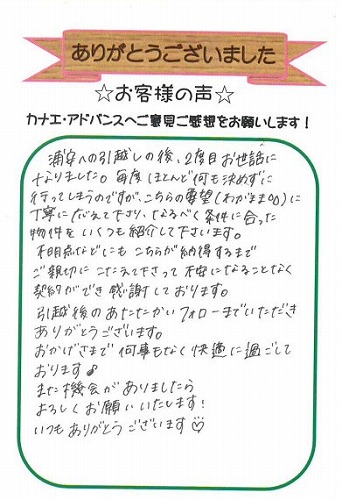 ありがとうございました
☆お客様の声☆
カナエ・アドバンスへご意見ご感想をお願いします！
浦安への引越しの後、2度目お世話に
なりました。毎度ほとんど何も決めずに
行ってしまうのですが、こちらの要望(わがまま○○)に
丁寧にこたえて下さり、なるべく条件に合った
物件をいくつも紹介して下さいます。
不明点などにもこちらが納得するまで
ご親切にこたえて下さって不安になることなく
契約ができ感謝しております。
引越後のあたたかいフォローまでいただき
ありがとうございます。
おかげさまで何事もなく快適に過ごして
おります♪
また機会がありましたら
よろしくお願いいたします！
いつもありがとうございます♡